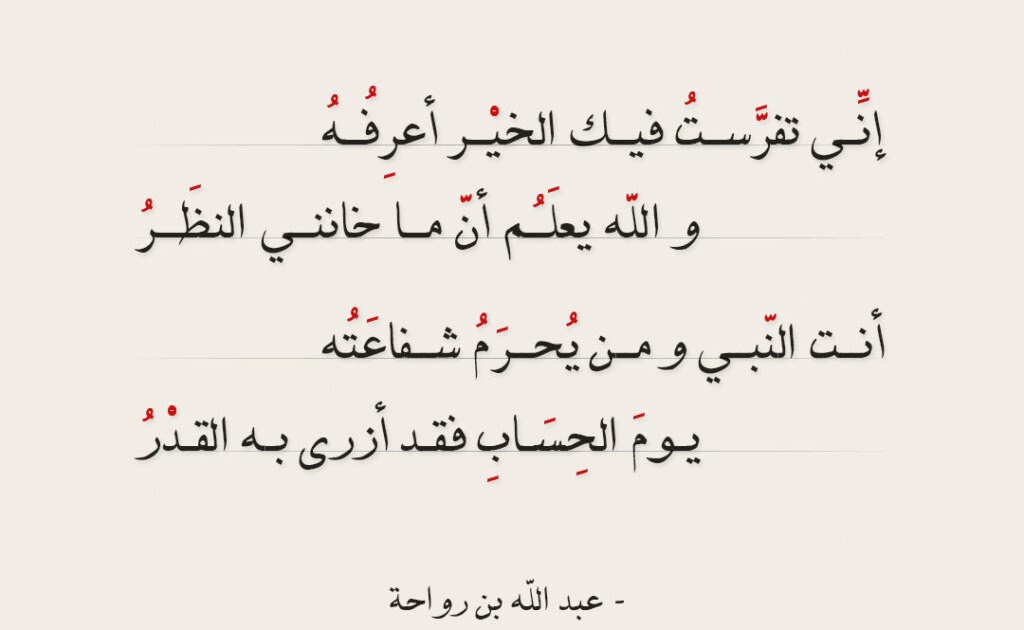 إنِّي تفرَّستُ فيك الخيْر أعرِفُهُ
و اللّه يعلَمُ أنّ ما خانني النظَرُ
أنت النّبي و من يُحرَمُ شفاعَتُه
يومَ الحِسَابِ فقد أزرى به القدْرُ
- عبد اللّه بن رواحة